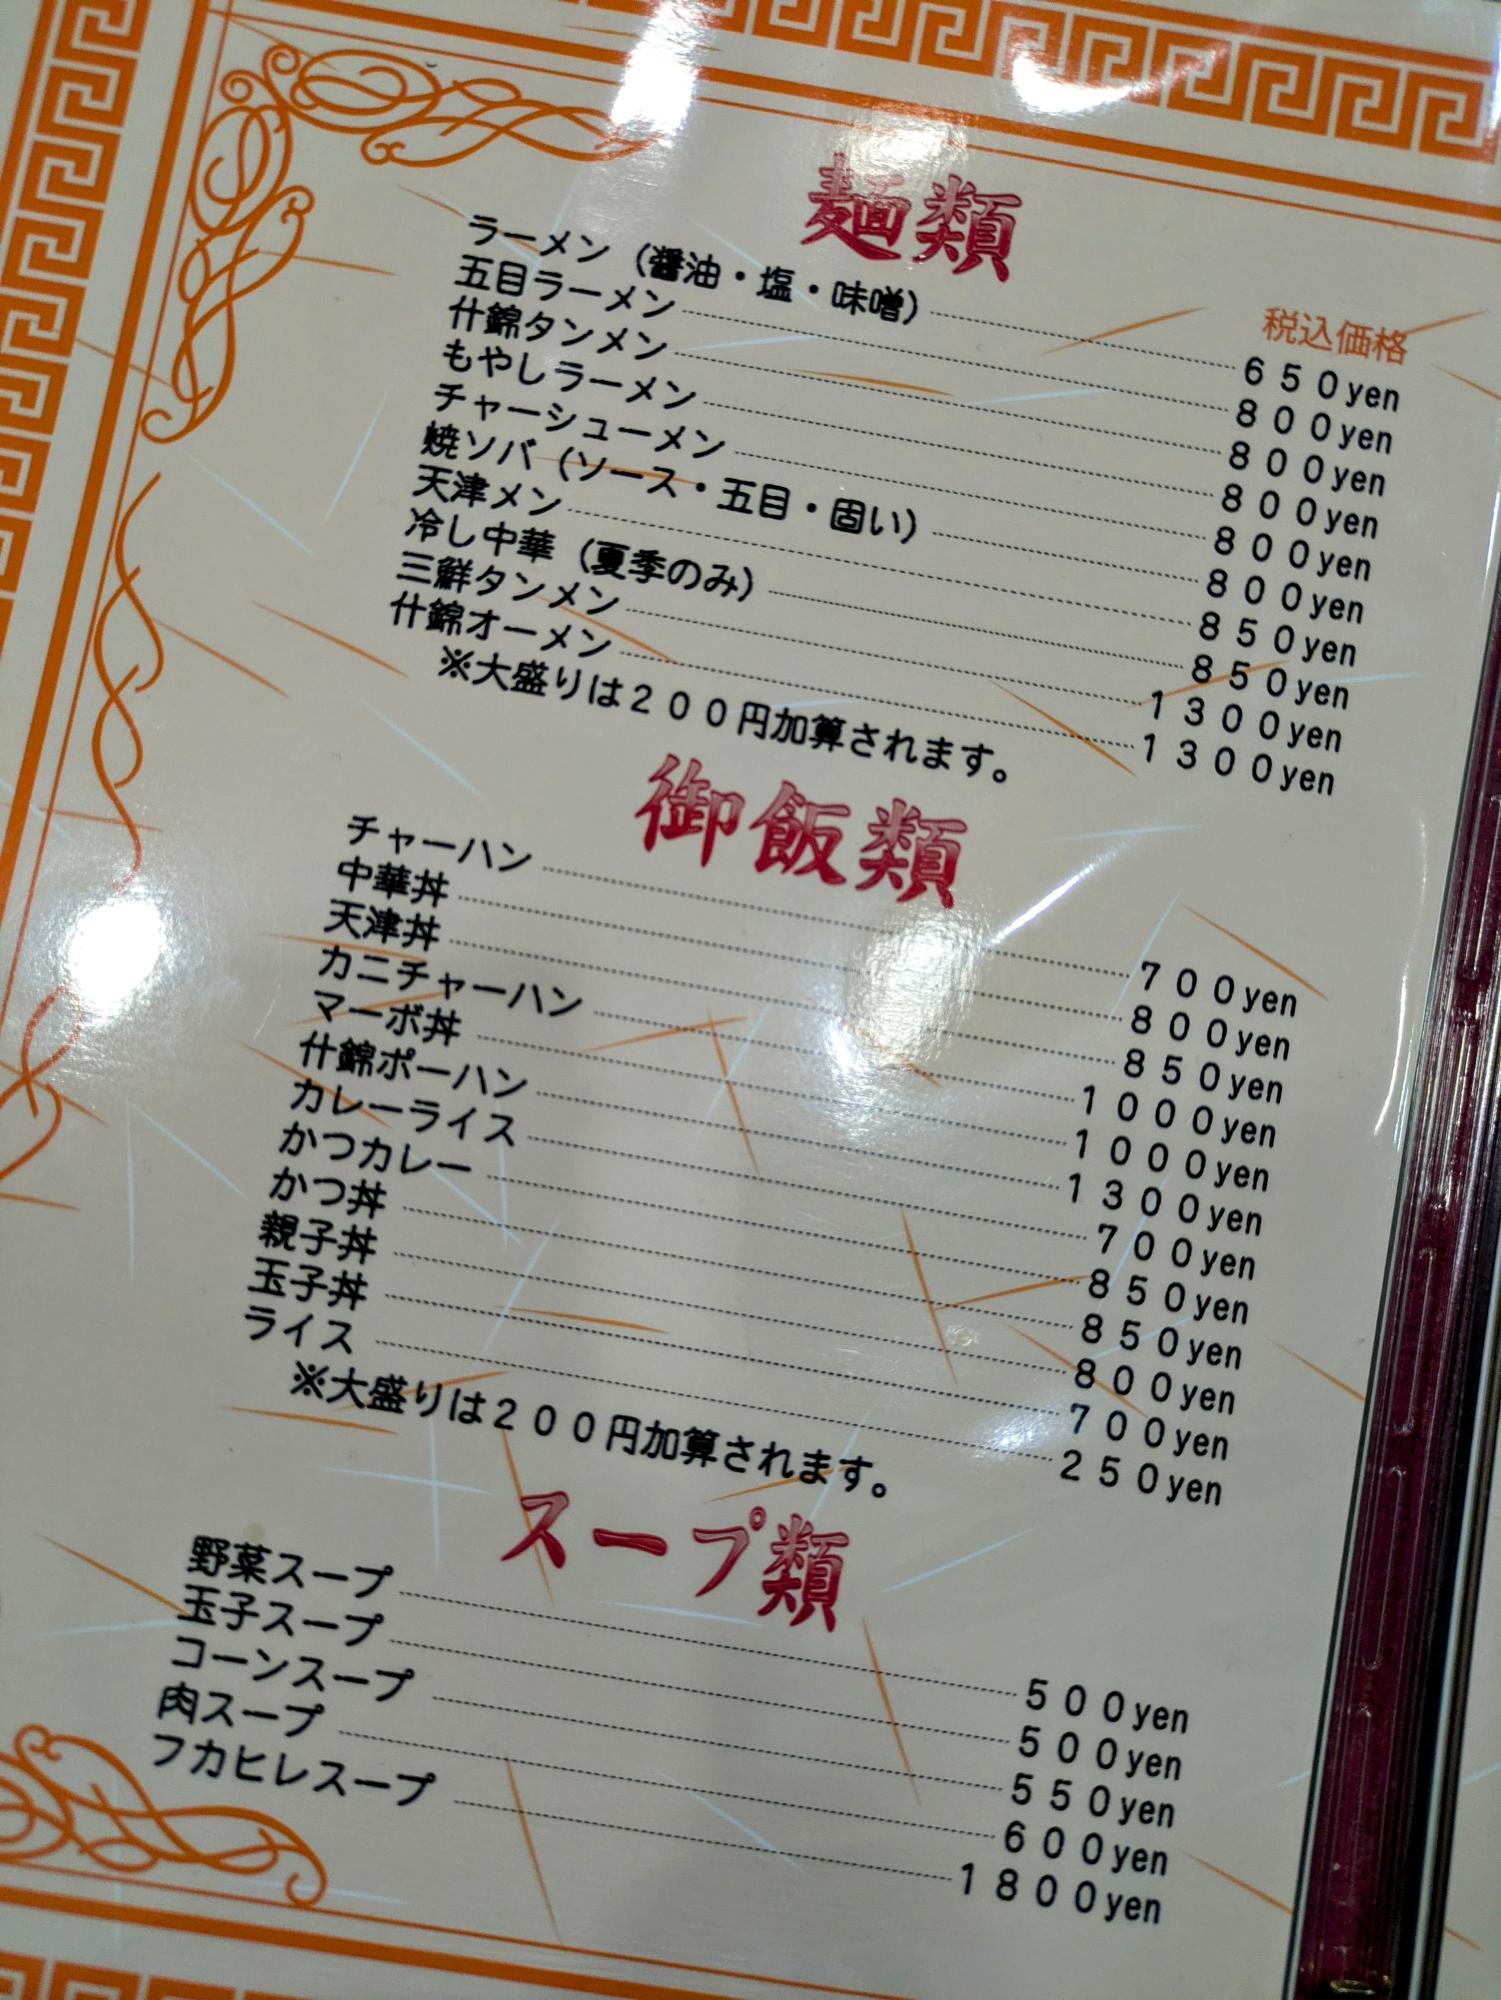 麺類
税込価格
ラーメン（醤油・塩・味噌） 650yen
五目ラーメン 800yen
什錦タンメン 800yen
もやしラーメン 800yen
チャーシューメン 800yen
焼ソバ（ソース・五目・固い） 800yen
天津メン 850yen
冷し中華（夏季のみ） 850yen
三鮮タンメン 1300yen
什錦オーメン 1300yen
※大盛りは200円加算されます。
御飯類
チャーハン 700yen
中華丼 800yen
天津丼 850yen
カニチャーハン 1000yen
マーボ丼 1000yen
什錦ポーハン 1300yen
カレーライス 700yen
かつカレー 850yen
かつ丼 850yen
親子丼 800yen
玉子丼 700yen
ライス 250yen
※大盛りは200円加算されます。
スープ類
野菜スープ 500yen
玉子スープ 500yen
コーンスープ 550yen
肉スープ 600yen
フカヒレスープ 1800yen